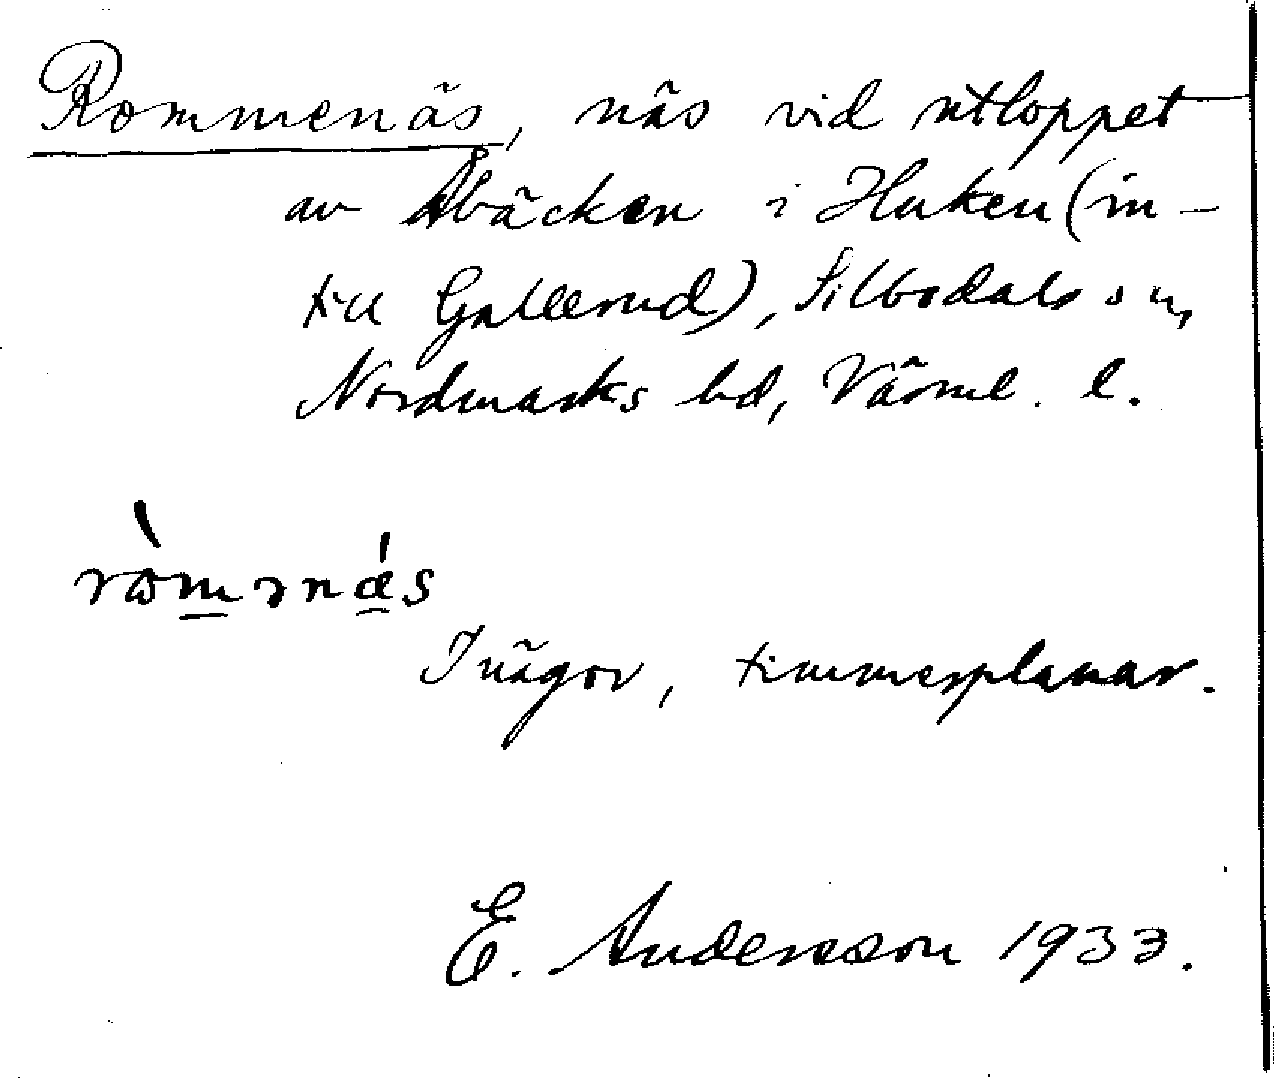 Rommenäs, näs vid utloppet
av Åbäcken i Huken (in-
till Gallerud), Silbodals sn,
Nordmarks hd, Värml. l.
ròmənä́s
Inägor, timmerplanar.
E. Andersson 1933.